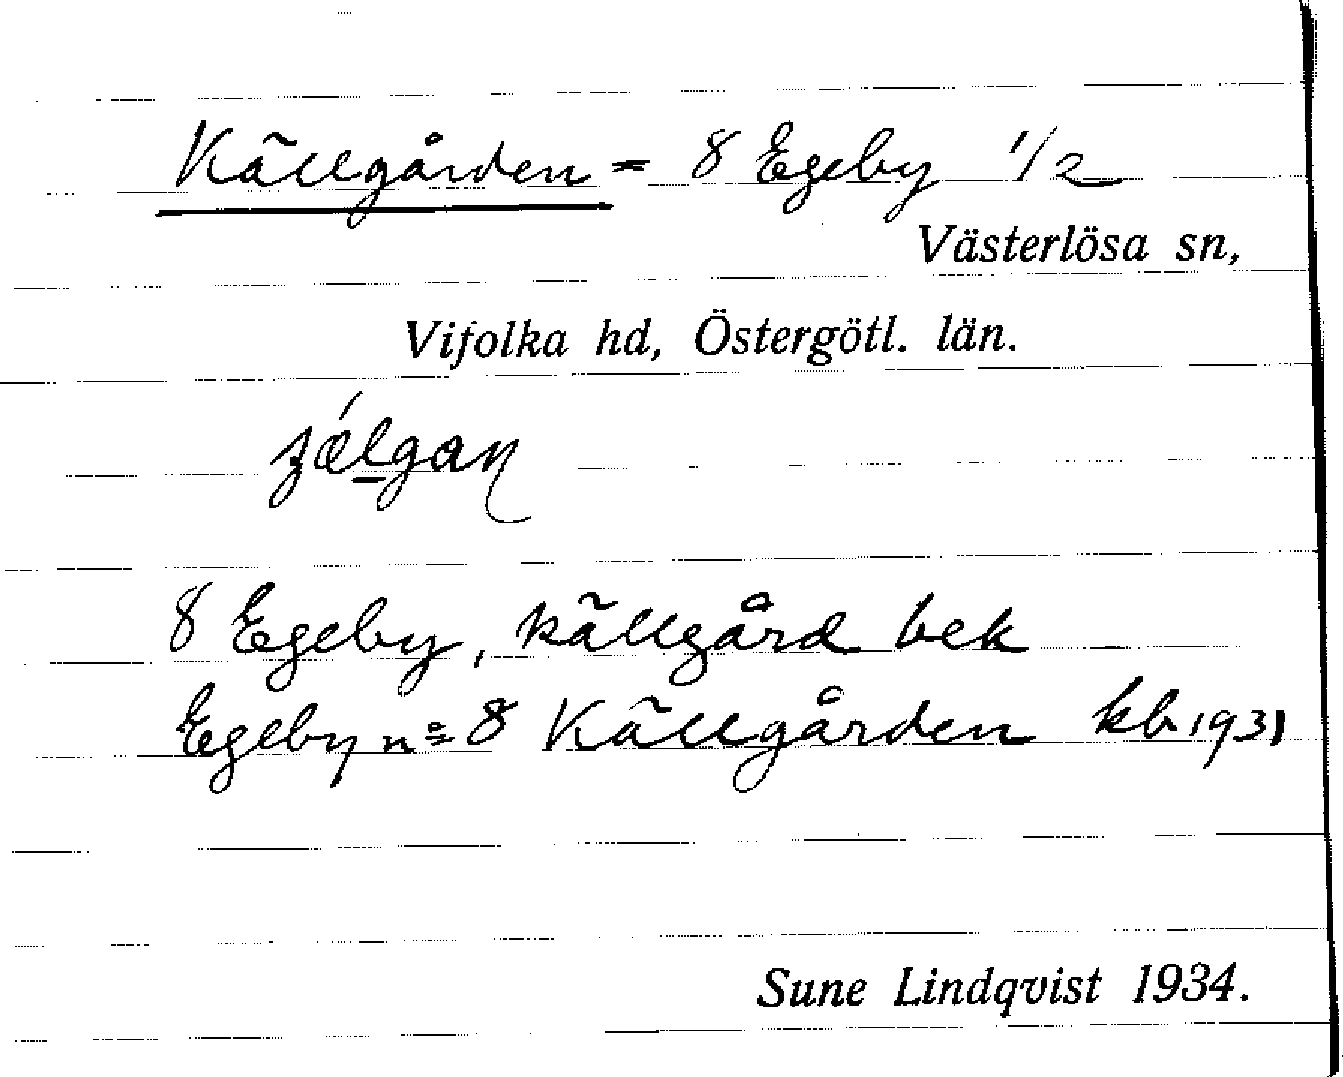 Källgården = 8 Egeby 1/2
Västerlösa sn,
Vifolka hd, Östergötl. län.
8 Egeby, källgård bek
Egeby nº 8 Källgården kb 1931
Sune Lindqvist 1934.